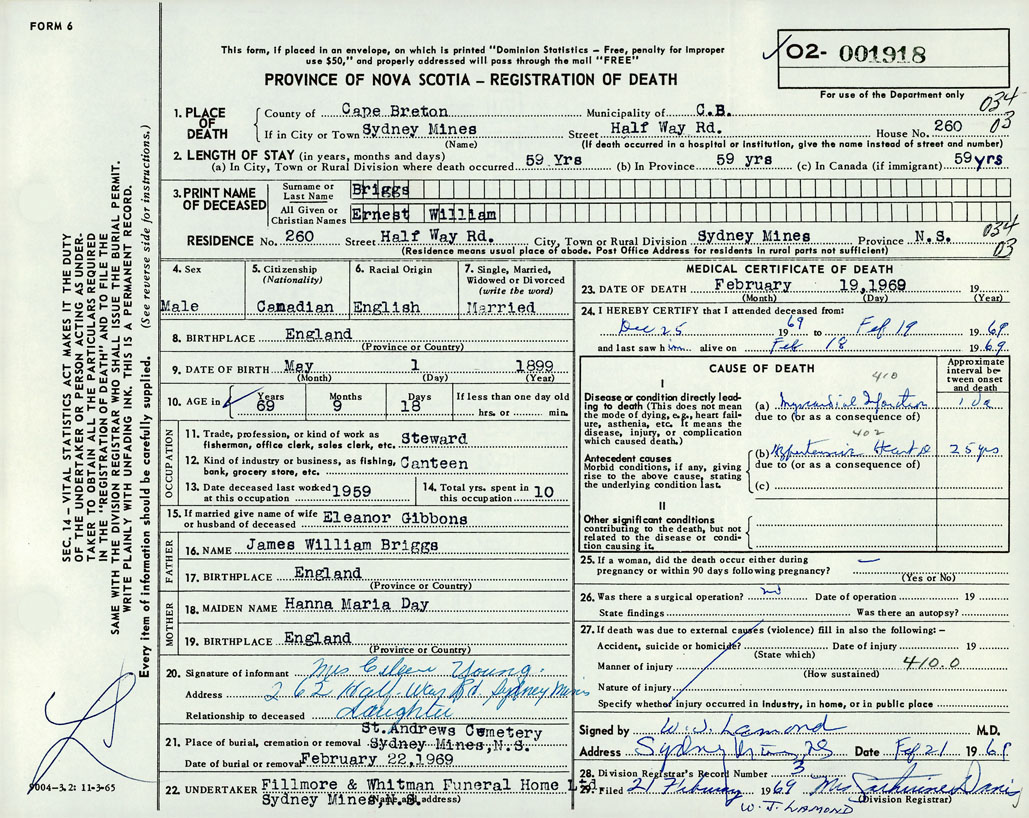 FORM 6
This form, if placed in an envelope, on which is printed "Dominion Statistics – Free, penalty for improper
use $50," and properly addressed will pass through the mail "FREE"
PROVINCE OF NOVA SCOTIA – REGISTRATION OF DEATH
O2- 001918
For use of the Department only
034
03
1. PLACE OF DEATH
County of Cape Breton Municipality of C.B.
If in City or Town Sydney Mines Street Half Way Rd. House No. 260
(Name) (If death occurred in a hospital or institution, give the name instead of street and number)
2. LENGTH OF STAY (in years, months and days)
(a) In City, Town or Rural Division where death occurred 59 Yrs (b) In Province 59 yrs (c) In Canada (if immigrant) 59 yrs
3. PRINT NAME OF DECEASED
Surname or Last Name Briggs
All Given or Christian Names Ernest William
RESIDENCE No. 260 Street Half Way Rd. City, Town or Rural Division Sydney Mines Province N.S.
034
03
(Residence means usual place of abode. Post Office Address for residents in rural parts not sufficient)
4. Sex
Male
5. Citizenship
(Nationality)
Canadian
6. Racial Origin
English
7. Single, Married,
Widowed or Divorced
(write the word)
Married
8. BIRTHPLACE England
(Province or Country)
9. DATE OF BIRTH May 1 1899
(Month) (Day) (Year)
10. AGE in Years Months Days If less than one day old
69 9 18 hrs. or min.
OCCUPATION
11. Trade, profession, or kind of work as
fisherman, office clerk, sales clerk, etc. Steward
12. Kind of industry or business, as fishing,
bank, grocery store, etc. Canteen
13. Date deceased last worked
at this occupation 1959
14. Total yrs. spent in
this occupation 10
15. If married give name of wife
or husband of deceased Eleanor Gibbons
FATHER
16. NAME James William Briggs
17. BIRTHPLACE England
(Province or Country)
MOTHER
18. MAIDEN NAME Hanna Maria Day
19. BIRTHPLACE England
(Province or Country)
20. Signature of informant Mrs Eileen Young.
Address 262 Half-Way Rd Sydney Mines
Relationship to deceased daughter
21. Place of burial, cremation or removal St. Andrews Cemetery
Sydney Mines, N.S.
Date of burial or removal February 22, 1969
22. UNDERTAKER Fillmore & Whitman Funeral Home Ltd.
Sydney Mines, N.S.
(Name and address)
MEDICAL CERTIFICATE OF DEATH
23. DATE OF DEATH February 19, 1969 19
(Month) (Day) (Year)
24. I HEREBY CERTIFY that I attended deceased from:
Dec 25 1969 to Feb 19 1969
and last saw him alive on Feb 18 1969
CAUSE OF DEATH
Approximate interval between onset and death
I
Disease or condition directly leading to death (This does not mean the mode of dying, e.g., heart failure, asthenia, etc. It means the disease, injury, or complication which caused death.)
410
(a) Myocardial Infarction 1 da
due to (or as a consequence of)
402
Antecedent causes
Morbid conditions, if any, giving rise to the above cause, stating the underlying condition last.
(b) Hypertensive Heart D 25 yrs
due to (or as a consequence of)
(c)
II
Other significant conditions
contributing to the death, but not related to the disease or condition causing it.
25. If a woman, did the death occur either during
pregnancy or within 90 days following pregnancy?
(Yes or No)
26. Was there a surgical operation? no Date of operation 19
State findings Was there an autopsy?
27. If death was due to external causes (violence) fill in also the following: –
Accident, suicide or homicide? Date of injury 19
(State which)
Manner of injury 410.0
(How sustained)
Nature of injury
Specify whether injury occurred in industry, in home, or in public place
Signed by W. J. Lamond M.D.
Address Sydney Mines NS Date Feb 21 1969
28. Division Registrar's Record Number 3
29. Filed 21 February 1969 Mrs Catherine Davis
(Division Registrar)
W. J. LAMOND
SEC. 14 – VITAL STATISTICS ACT MAKES IT THE DUTY
OF THE UNDERTAKER OR PERSON ACTING AS UNDER-
TAKER TO OBTAIN ALL THE PARTICULARS REQUIRED
IN THE "REGISTRATION OF DEATH" AND TO FILE THE
SAME WITH THE DIVISION REGISTRAR WHO SHALL ISSUE THE BURIAL PERMIT.
WRITE PLAINLY WITH UNFADING INK. THIS IS A PERMANENT RECORD.
Every item of information should be carefully supplied. (See reverse side for instructions.)
9004-3.2: 11-3-65